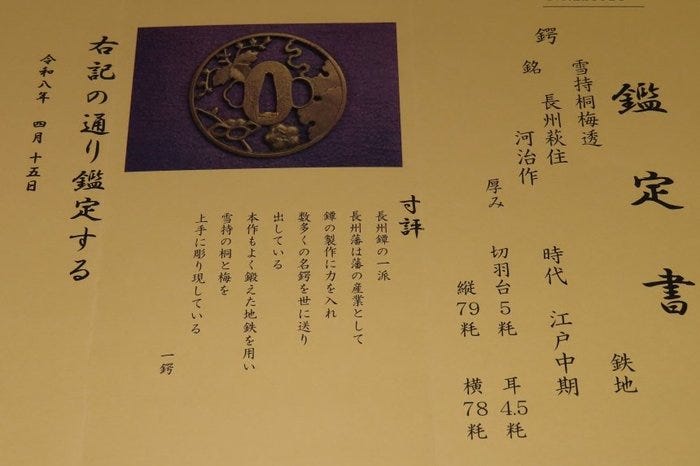 鑑定書
鉄地
雪持桐梅透
時代 江戸中期
鍔 銘 長州萩住
河治作
厚み 切羽台5粍 耳4.5粍
縦79粍 横78粍
寸評
長州鐔の一派
長州藩は藩の産業として
鐔の製作に力を入れ
数多くの名鍔を世に送り
出している
本作もよく鍛えた地鉄を用い
雪持の桐と梅を
上手に彫り現している
一鍔
右記の通り鑑定する
令和八年 四月十五日